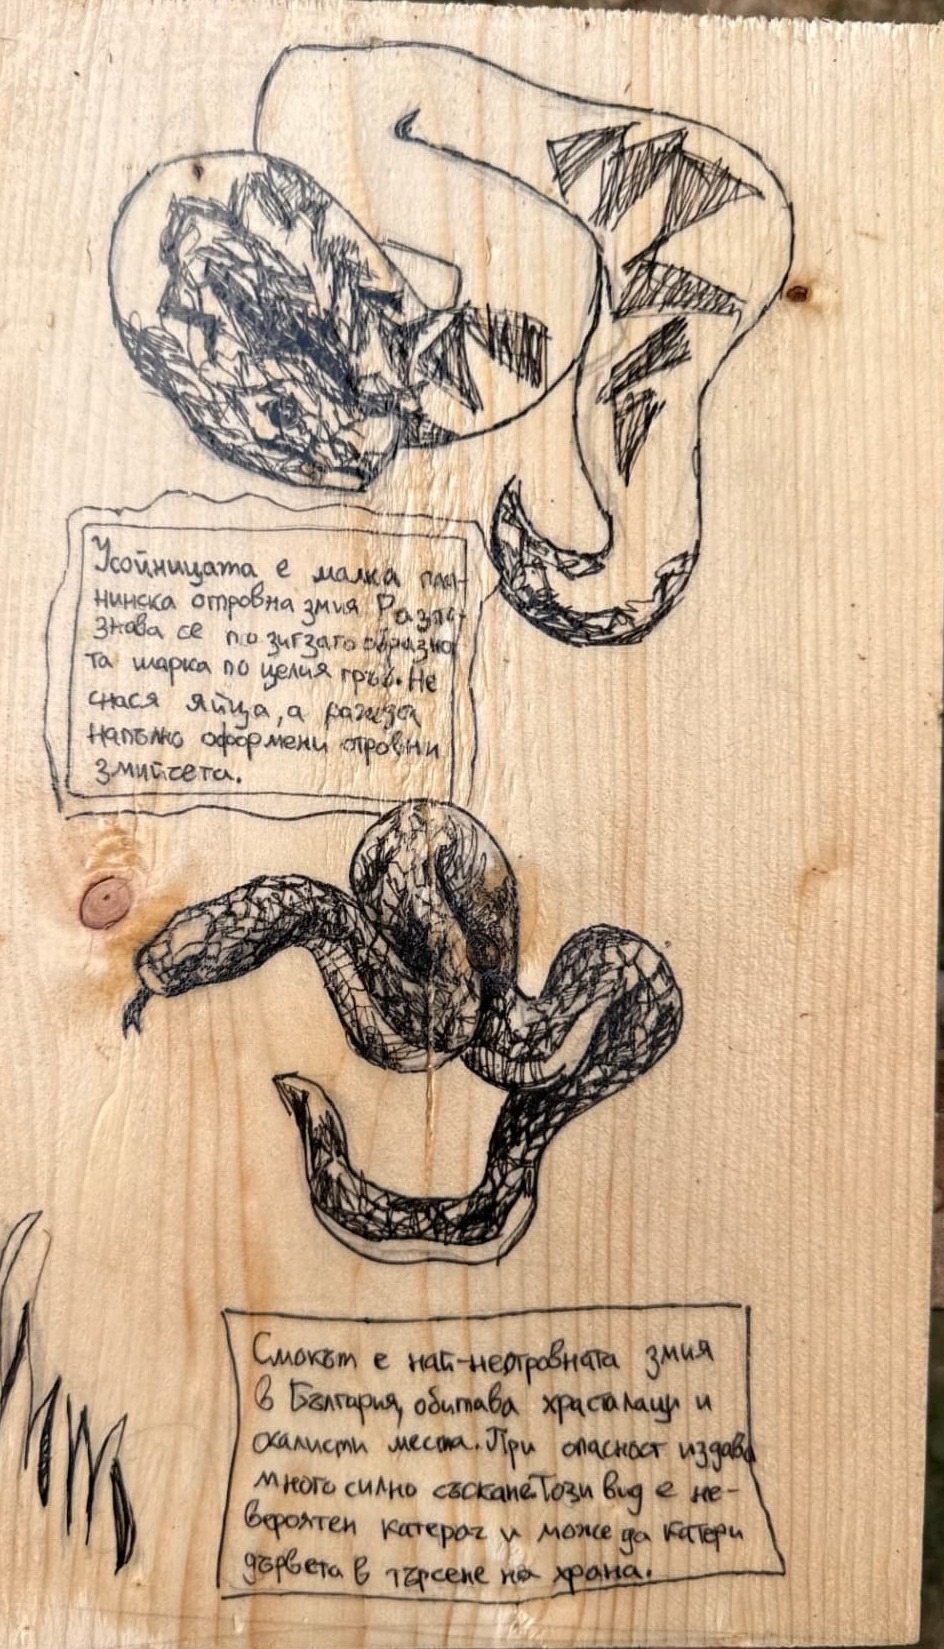 Усойницата е малка пла-
нинска отровна змия Разпо-
знава се по зигзагообразна
та шарка по целия гръб. Не
снася яйца, а ражда
напълно оформени отровни
змийчета.
Смокът е най-неотровната змия
в България, обитава храсталаци и
скалисти места. При опасност издава
много силно съскане. Този вид е не-
вероятен катерач и може да катери
дървета в търсене на храна.